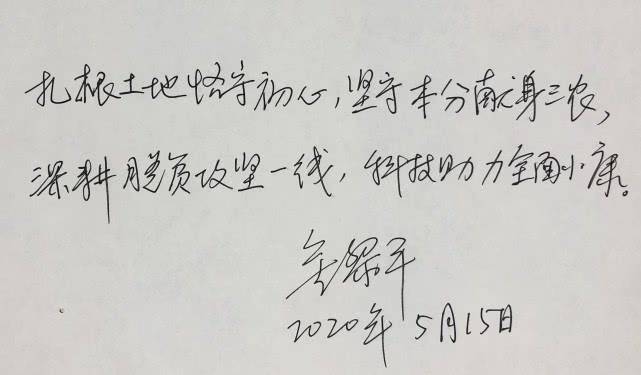 扎根土地恪守初心，坚守本分献身三农，
深耕脱贫攻坚一线，科技助力全面小康。
金梁平
2020年5月15日